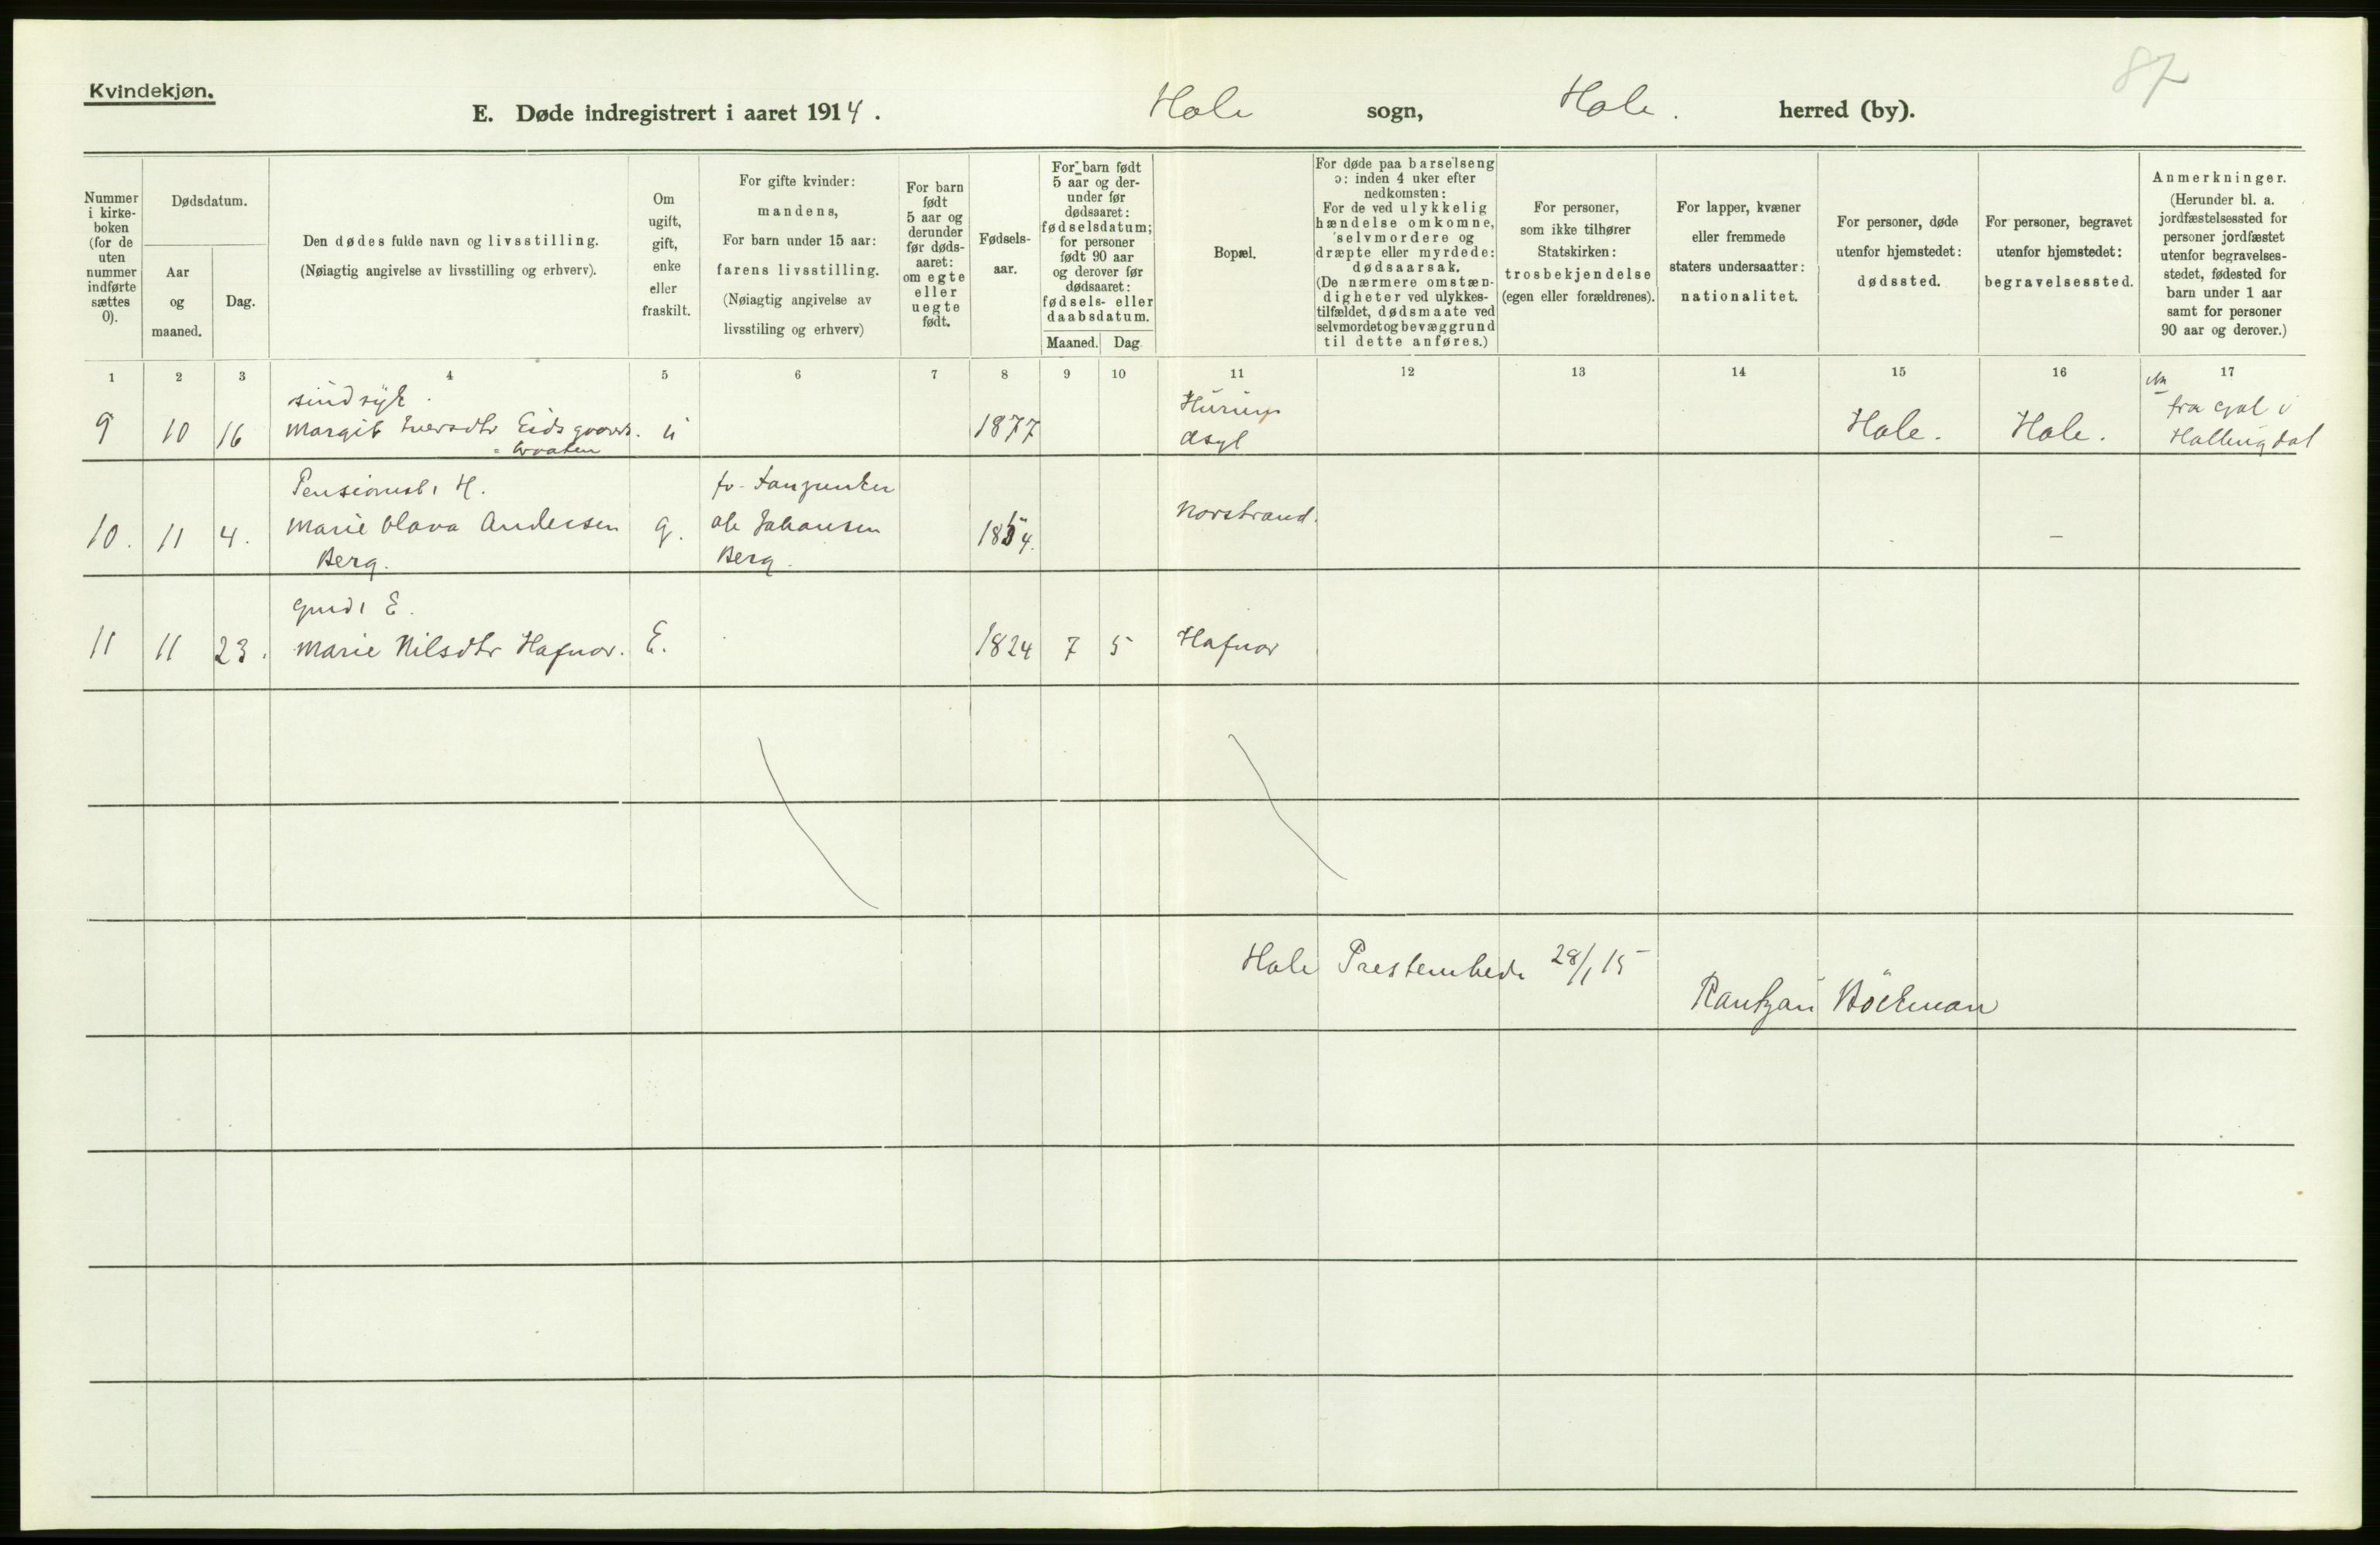 87
Kvindekjøn.
E. Døde indregistrert i aaret 1914. Hole sogn, Hole. herred (by).
Nummer i kirke-boken (for de uten nummer indførte sættes 0).
Dødsdatum.
Aar og maaned.
Dag.
Den dødes fulde navn og livsstilling.
(Nøiagtig angivelse av livsstilling og erhverv).
Om ugift, gift, enke eller fraskilt.
For gifte kvinder:
mandens,
For barn under 15 aar:
farens livsstilling.
(Nøiagtig angivelse av
livsstiling og erhverv)
For barn født 5 aar og derunder før døds-aaret: om egte eller uegte født.
Fødsels-aar.
For barn født 5 aar og der-under før dødsaaret: fødselsdatum; for personer født 90 aar og derover før dødsaaret: fødsels- eller daabsdatum.
Maaned. Dag
Bopæl.
For døde paa barselseng
ɔ: inden 4 uker efter
nedkomsten:
For de ved ulykkelig
hændelse omkomne,
selvmordere og
dræpte eller myrdede:
dødsaarsak.
(De nærmere omstæn-
digheter ved ulykkes-
tilfældet, dødsmaate ved
selvmordet og bevæggrund
til dette anføres.)
For personer,
som ikke tilhører
Statskirken:
trosbekjendelse
(egen eller forældrenes).
For lapper, kvæner
eller fremmede
staters undersaatter:
nationalitet.
For personer, døde
utenfor hjemstedet:
dødssted.
For personer, begravet
utenfor hjemstedet:
begravelsessted.
Anmerkninger.
(Herunder bl. a.
jordfæstelsessted for
personer jordfæstet
utenfor begravelses-
stedet, fødested for
barn under 1 aar
samt for personer
90 aar og derover.)
1 2 3 4 5 6 7 8 9 10 11 12 13 14 15 16 17
sindsyk.
9 10 16 Margit Iversdtr u 1877 asyl Hole. Hole. fra Gol i
Hallingdal
Pensionist, H.
10. 11 4. Marie Olava Andersen g. Ole Johansen 1854. Norstrand. -
Berg. Berg.
Gmd, E.
11 11 23. Marie Nilsdtr Hafnor. E. 1824 7 5 Hafnor
Hole Prestembede 28/1 15
Rantzau Böckman